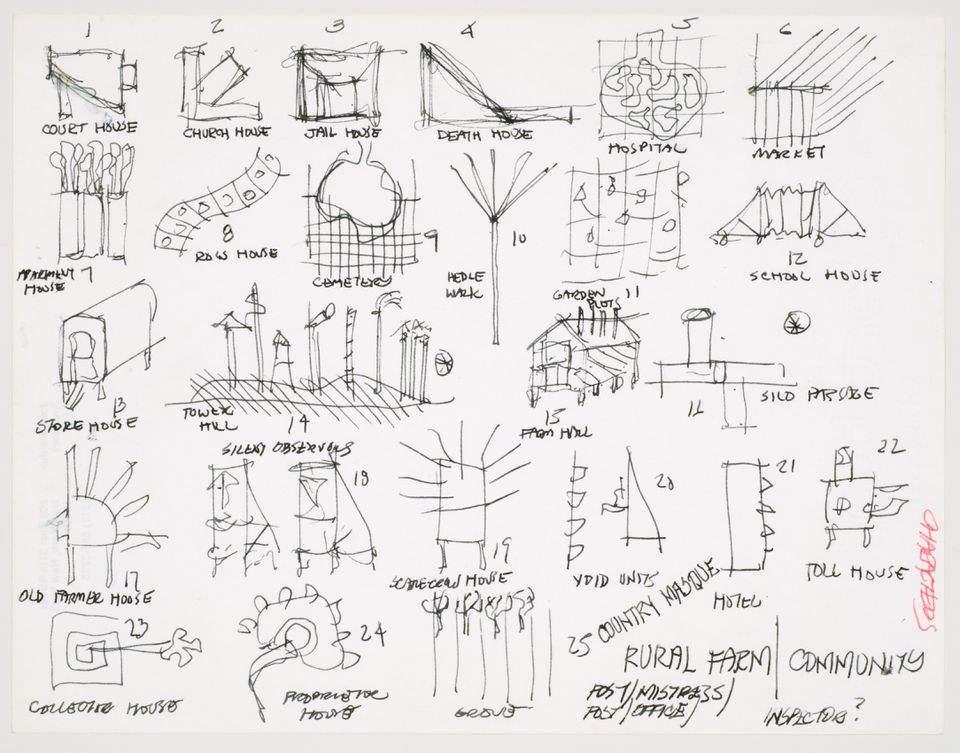 1 2 3 4 5 6
COURT HOUSE
CHURCH HOUSE
JAIL HOUSE
DEATH HOUSE
HOSPITAL
MARKET
7
APARTMENT
HOUSE
8
ROW HOUSE
9
CEMETERY
10
11
GARDEN
PLOTS
12
SCHOOL HOUSE
13
STORE HOUSE
14
TOWER
HILL
15
FARM HALL
SILO PASSAGE
17
OLD FARMER HOUSE
SILENT OBSERVERS
18
19
SCARECROW HOUSE
20
VOID UNITS
21
HOTEL
22
TOLL HOUSE
23
COLLECTOR HOUSE
24
PROPRIETOR
HOUSE
GROVE
25 COUNTRY MASQUE
RURAL FARM | COMMUNITY
POST/MISTRESS/
POST/OFFICE/
INSPECTOR?